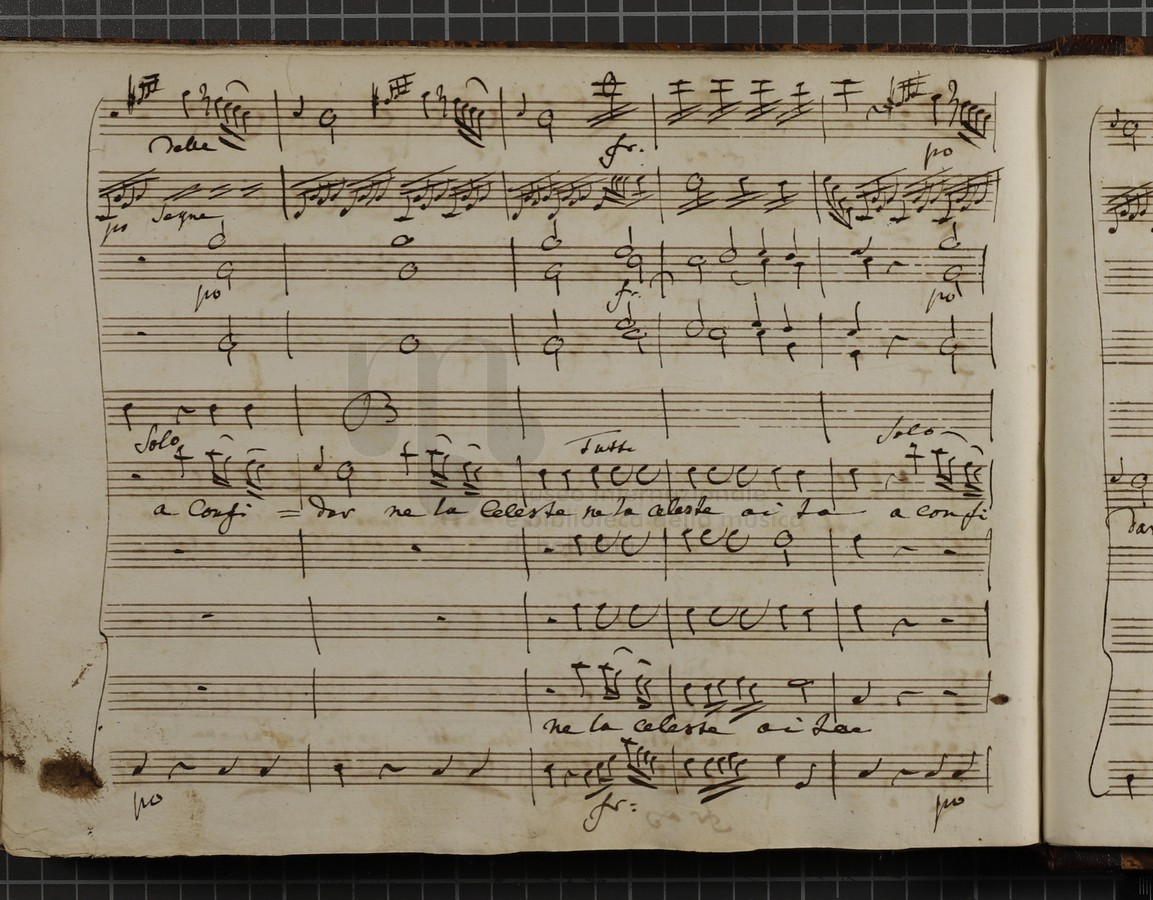 Dolce
fr.
po
po Segue
po
fr.
po
Solo
Tutti
Solo
a Confi = dar ne la Celeste ne la celeste ai ta a confi
dar
ne la celeste ai ta
po
fr:
po